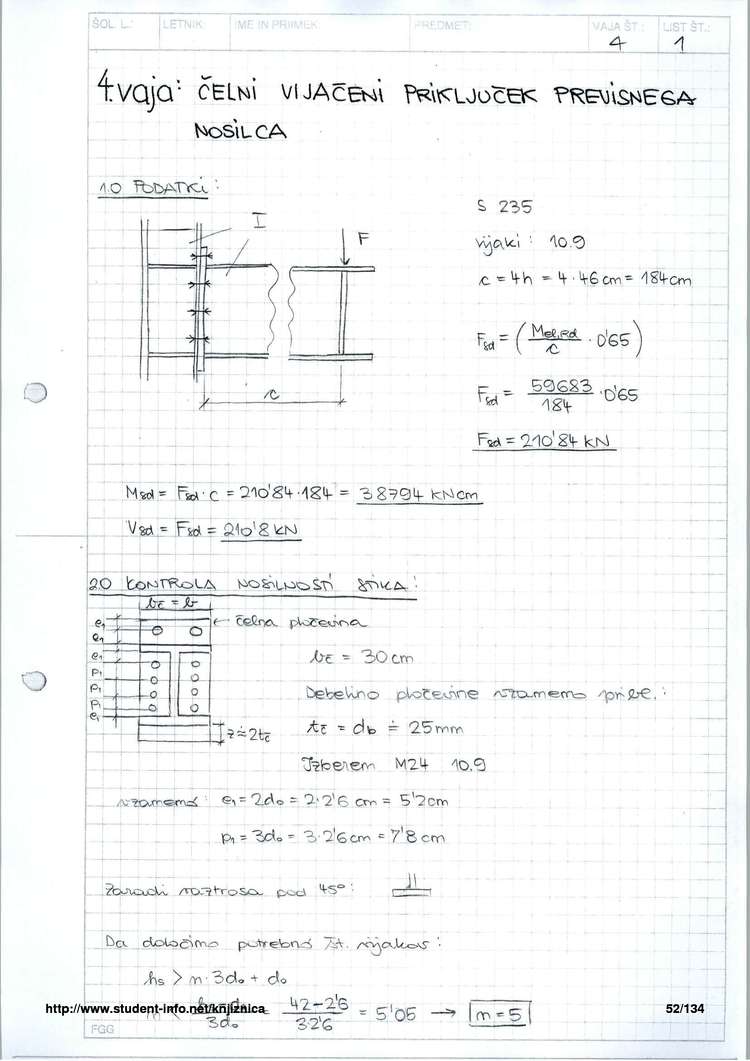 ŠOL. L.: LETNIK: IME IN PRIIMEK: PREDMET: VAJA ŠT.: LIST ŠT.:
4 1
4.vaja: ČELNI VIJAČENI PRIKLJUČEK PREVISNEGA
NOSILCA
1.0 PODATKI:
I
F
c
S 235
vijaki: 10.9
c = 4h = 4·46cm = 184cm
Fsd = (Mel,Rd / c · 0'65)
Fsd = 59683 / 184 · 0'65
Fsd = 210'84 kN
Msd = Fsd·c = 210'84·184 = 38794 kNcm
Vsd = Fsd = 210'8 kN
2.0 KONTROLA NOSILNOSTI STIKA:
bč = b
e1
e1
e1
p1
p1
p1
e1
← čelna pločevina
bč = 30cm
Debelino pločevine vzamemo
tč = db ≐ 25mm
z ≐ 2tč
Izberem M24 10.9
vzamemo: e1 = 2d0 = 2·2'6 cm = 5'2cm
p1 = 3d0 = 3·2'6cm = 7'8 cm
Zaradi raztrosa pod 45°:
Da določimo potrebno št. vijakov:
hs > n·3d0 + d0
3d0 42-2'6 / 3·2'6 = 5'05 → n = 5
http://www.student-info.net/knjiznica 52/134
FGG